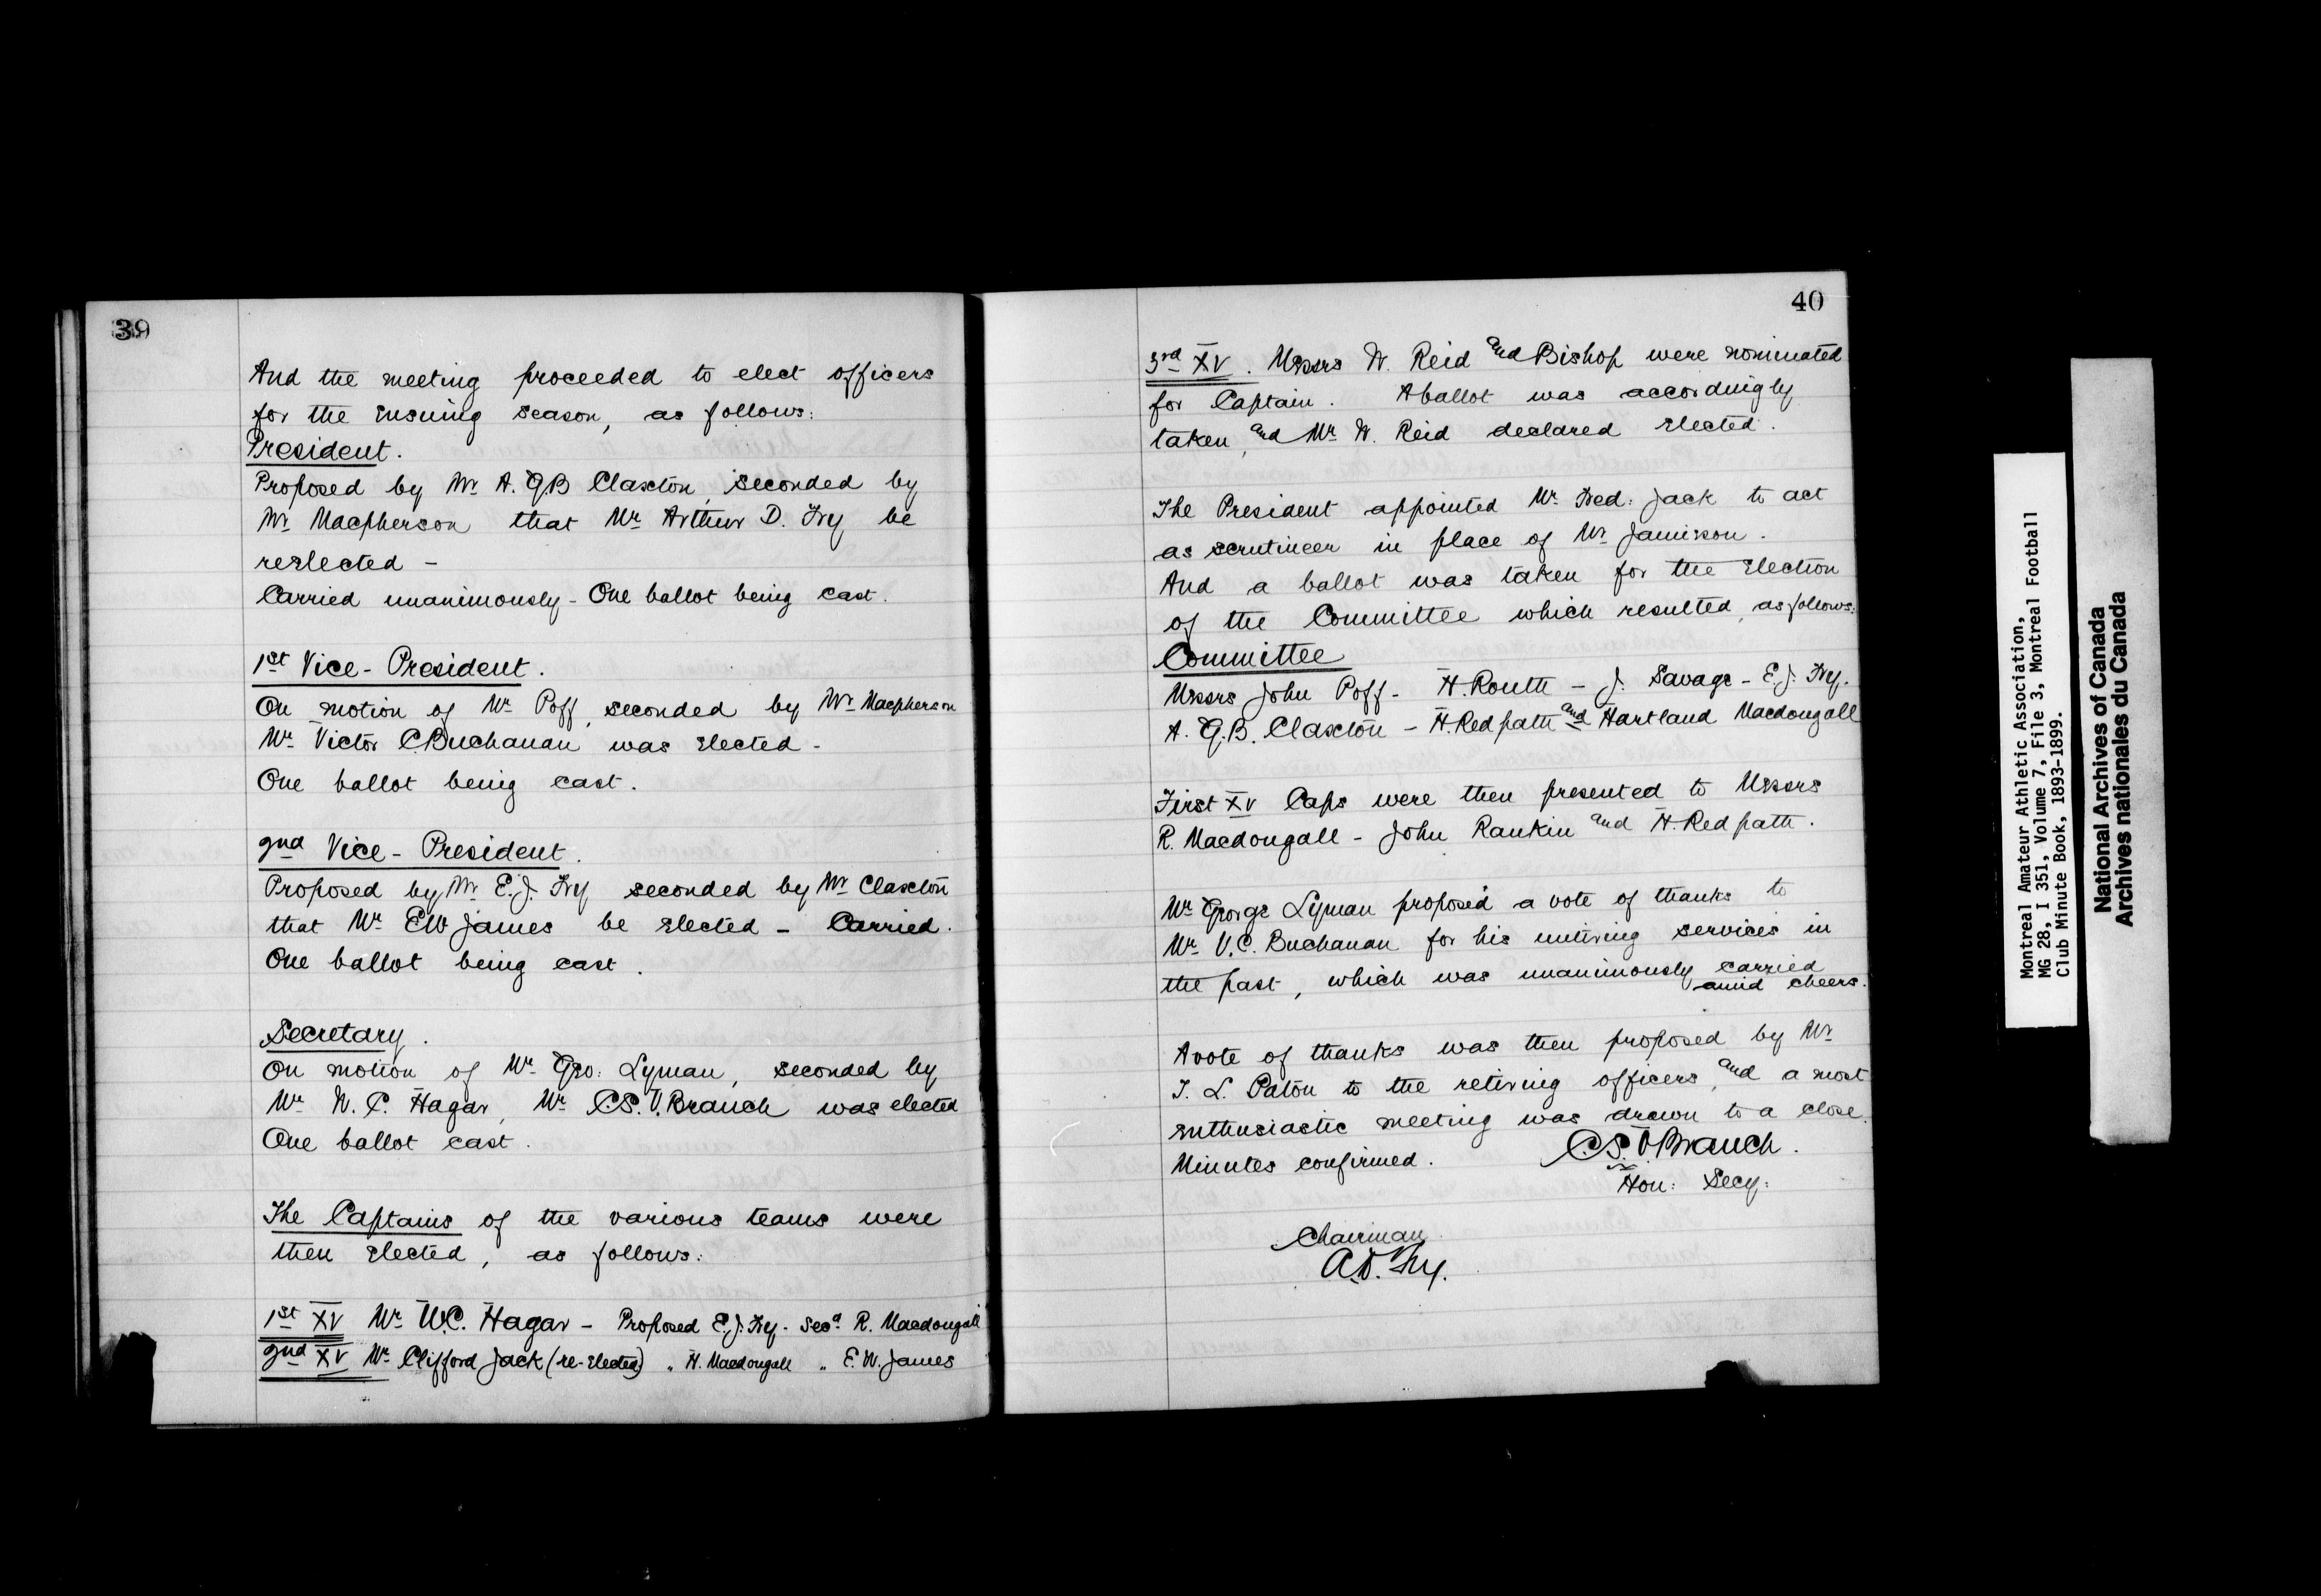 39
And the meeting proceeded to elect officers
for the ensuing season, as follows:
President.
Proposed by Mr A. G.B Claxton, seconded by
Mr Macpherson that Mr Arthur D. Fry be
reelected -
Carried unanimously - One ballot being cast.
1st Vice - President.
On motion of Mr Poff, seconded by Mr Macpherson
Mr Victor C. Buchanan was elected -
One ballot being cast.
2nd Vice - President.
Proposed by Mr E. J. Fry seconded by Mr Claxton
that Mr E W James be elected - Carried.
One ballot being cast.
Secretary.
On motion of Mr Geo: Lyman, seconded by
Mr W. C. Hagar, Mr C.S.V. Branch was elected
One ballot cast.
The Captains of the various teams were
then elected, as follows:
1st XV Mr W.C. Hagar - Proposed E. J. Fry - Secd R. Macdougall
2nd XV Mr Clifford Jack (re-elected) " H. Macdougall " E. W. James
40
3rd XV. Messrs W. Reid and Bishop were nominated
for Captain. A ballot was accordingly
taken, and Mr W. Reid declared elected.
The President appointed Mr Fred: Jack to act
as scrutineer in place of Mr Jamieson.
And a ballot was taken for the election
of the Committee which resulted, as follows:
Committee
Messrs John Poff - H. Routh - J. Savage - E. J. Fry.
A. G.B. Claxton - H. Redpath and Hartland Macdougall
First XV Caps were then presented to Messrs
R. Macdougall - John Rankin and H. Redpath.
Mr George Lyman proposed a vote of thanks to
Mr V. C. Buchanan for his untiring services in
the past, which was unanimously carried
amid cheers.
A vote of thanks was then proposed by Mr
T. L. Paton to the retiring officers, and a most
enthusiastic meeting was drawn to a close.
Minutes confirmed. C.S. V Branch.
Hon: Secy:
Chairman
A.D. Fry.
Montreal Amateur Athletic Association,
MG 28, I 351, Volume 7, File 3, Montreal Football
Club Minute Book, 1893-1899.
National Archives of Canada
Archives nationales du Canada